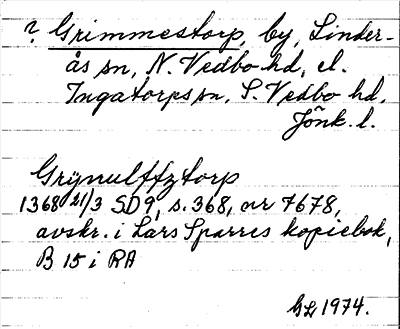 ? Grimmestorp, by, Linder-
ås sn, N. Vedbo hd, el.
Ingatorps sn, S. Vedbo hd,
Jönk. l.
Grijnulffztorp
1368 21/3 SD 9, s. 368, nr 7678,
avskr. i Lars Sparres kopiebok,
B 15 i RA
GL 1974.